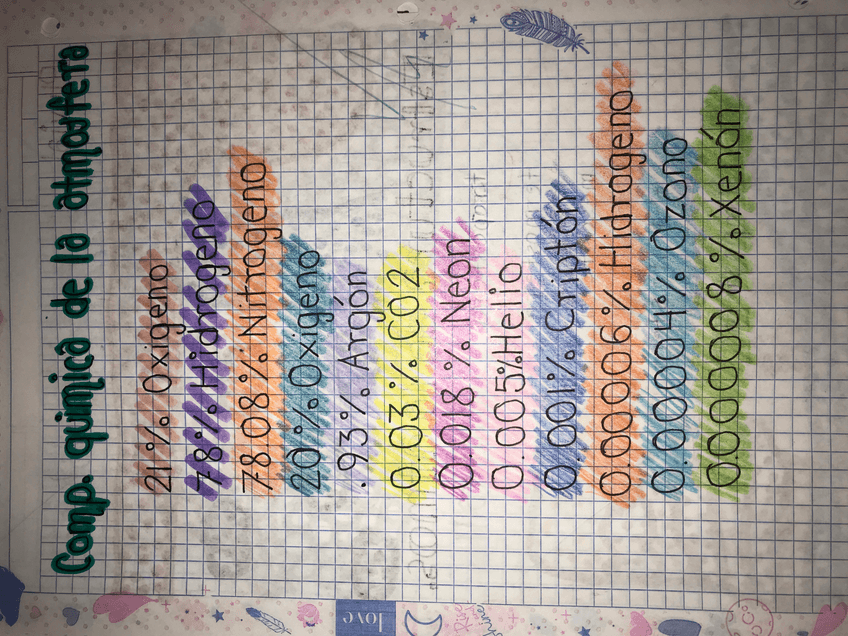 Comp. química de la atmosfera
21% Oxigeno
78% Hidrogeno
78.08% Nitrogeno
20% Oxigeno
.93% Argón
0.03% CO2
0.018 % Neon
0.005% Helio
0.001% Criptón
0.00006% Hidrogeno
0.00004% Ozono
00000008 % Xenón
love